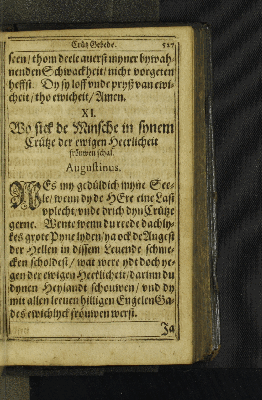 Crütz Gebede. 527
seen / thom deele auerst myner bywah-
nenden Schwackheit / nicht vorgeten
heffst. Dy sy loff vnde pryß van ewi-
cheit / tho ewicheit / Amen.
XI.
Wo sick de Minsche in synem
Crütze der ewigen Heerlicheit
fröuwen schal.
Augustinus.
WEs my gedüldich myne See-
le / wenn dy de HEre eine Last
vplecht / vnde drich dyn Crütze
gerne. Wente wenn du rede dachly-
kes grote Pyne lyden / ya ock de Angest
der Hellen in dissem Leuende schme-
cken scholdest / wat were ydt doch ye-
gen der ewigen Herrlicheit / darinn du
dynen Heylandt schouwen / vnd dy
mit allen leeuen hilligen Engelen Ga-
des ewichlyck fröuwen werst.
Ja